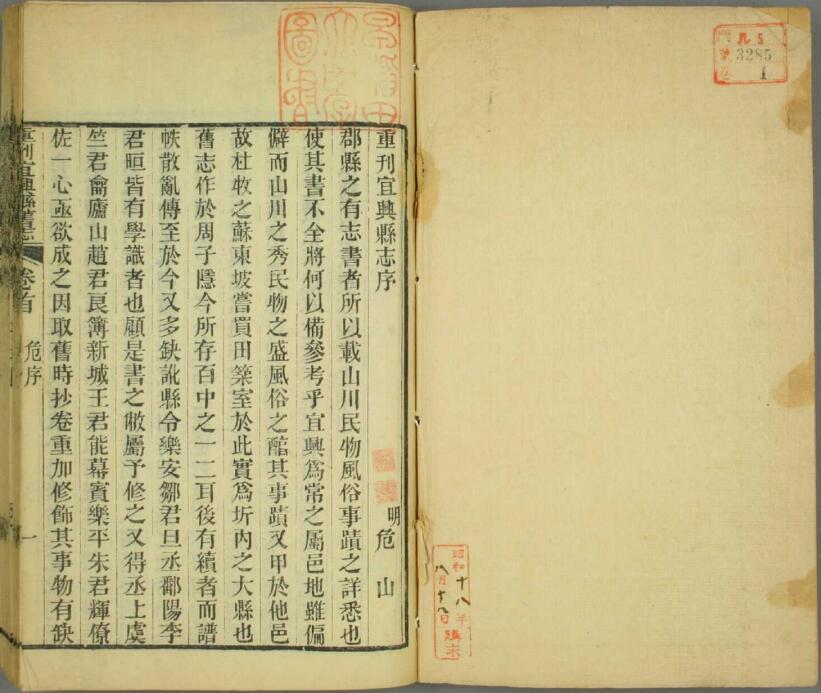 ル5
3285
1
昭和十八年
八月十八日購求
早稲田
大學
圖書
重刊宜興縣志序
明危山
郡縣之有志書者所以載山川民物風俗事蹟之詳悉也
使其書不全將何以備參考乎宜興爲常之屬邑地雖偏
僻而山川之秀民物之盛風俗之醇其事蹟又甲於他邑
故杜牧之蘇東坡嘗買田築室於此實爲圻內之大縣也
舊志作於周子隱今所存百中之一二耳後有續者而譜
帙散亂傳至於今又多缺訛縣令樂安鄒君旦丞鄱陽李
君晅皆有學識者也顧是書之敝屬予修之又得丞上虞
竺君龠廬山趙君艮簿新城王君能幕賓樂平朱君輝僚
佐一心亟欲成之因取舊時抄卷重加修飾其事物有缺
重刊宜興縣舊志
卷首
危序
一